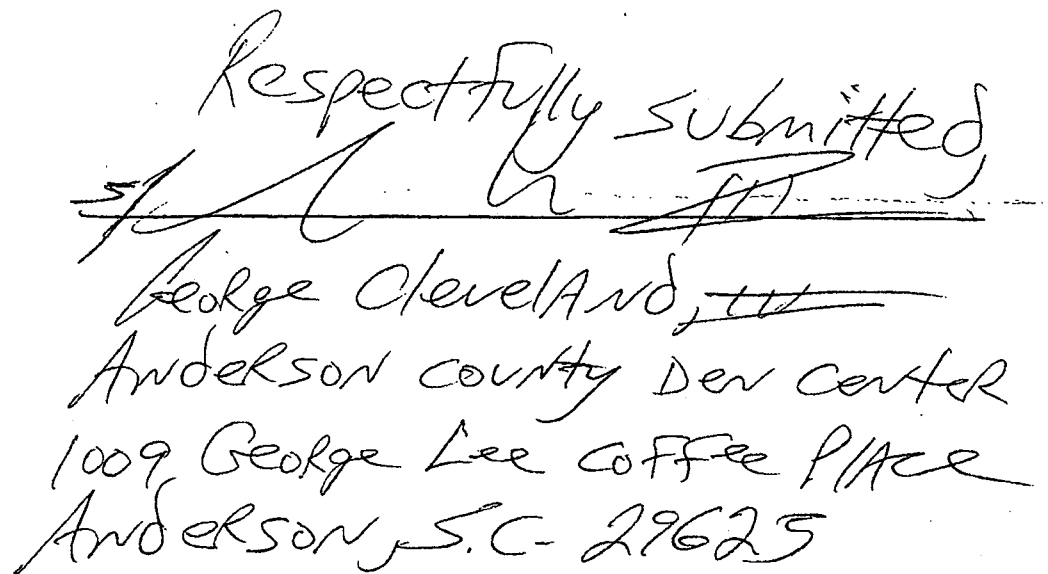 Respectfully submitted,
s/
George Cleveland, III
Anderson County Den Center
1009 George Lee Coffee Place
Anderson, S.C- 29625